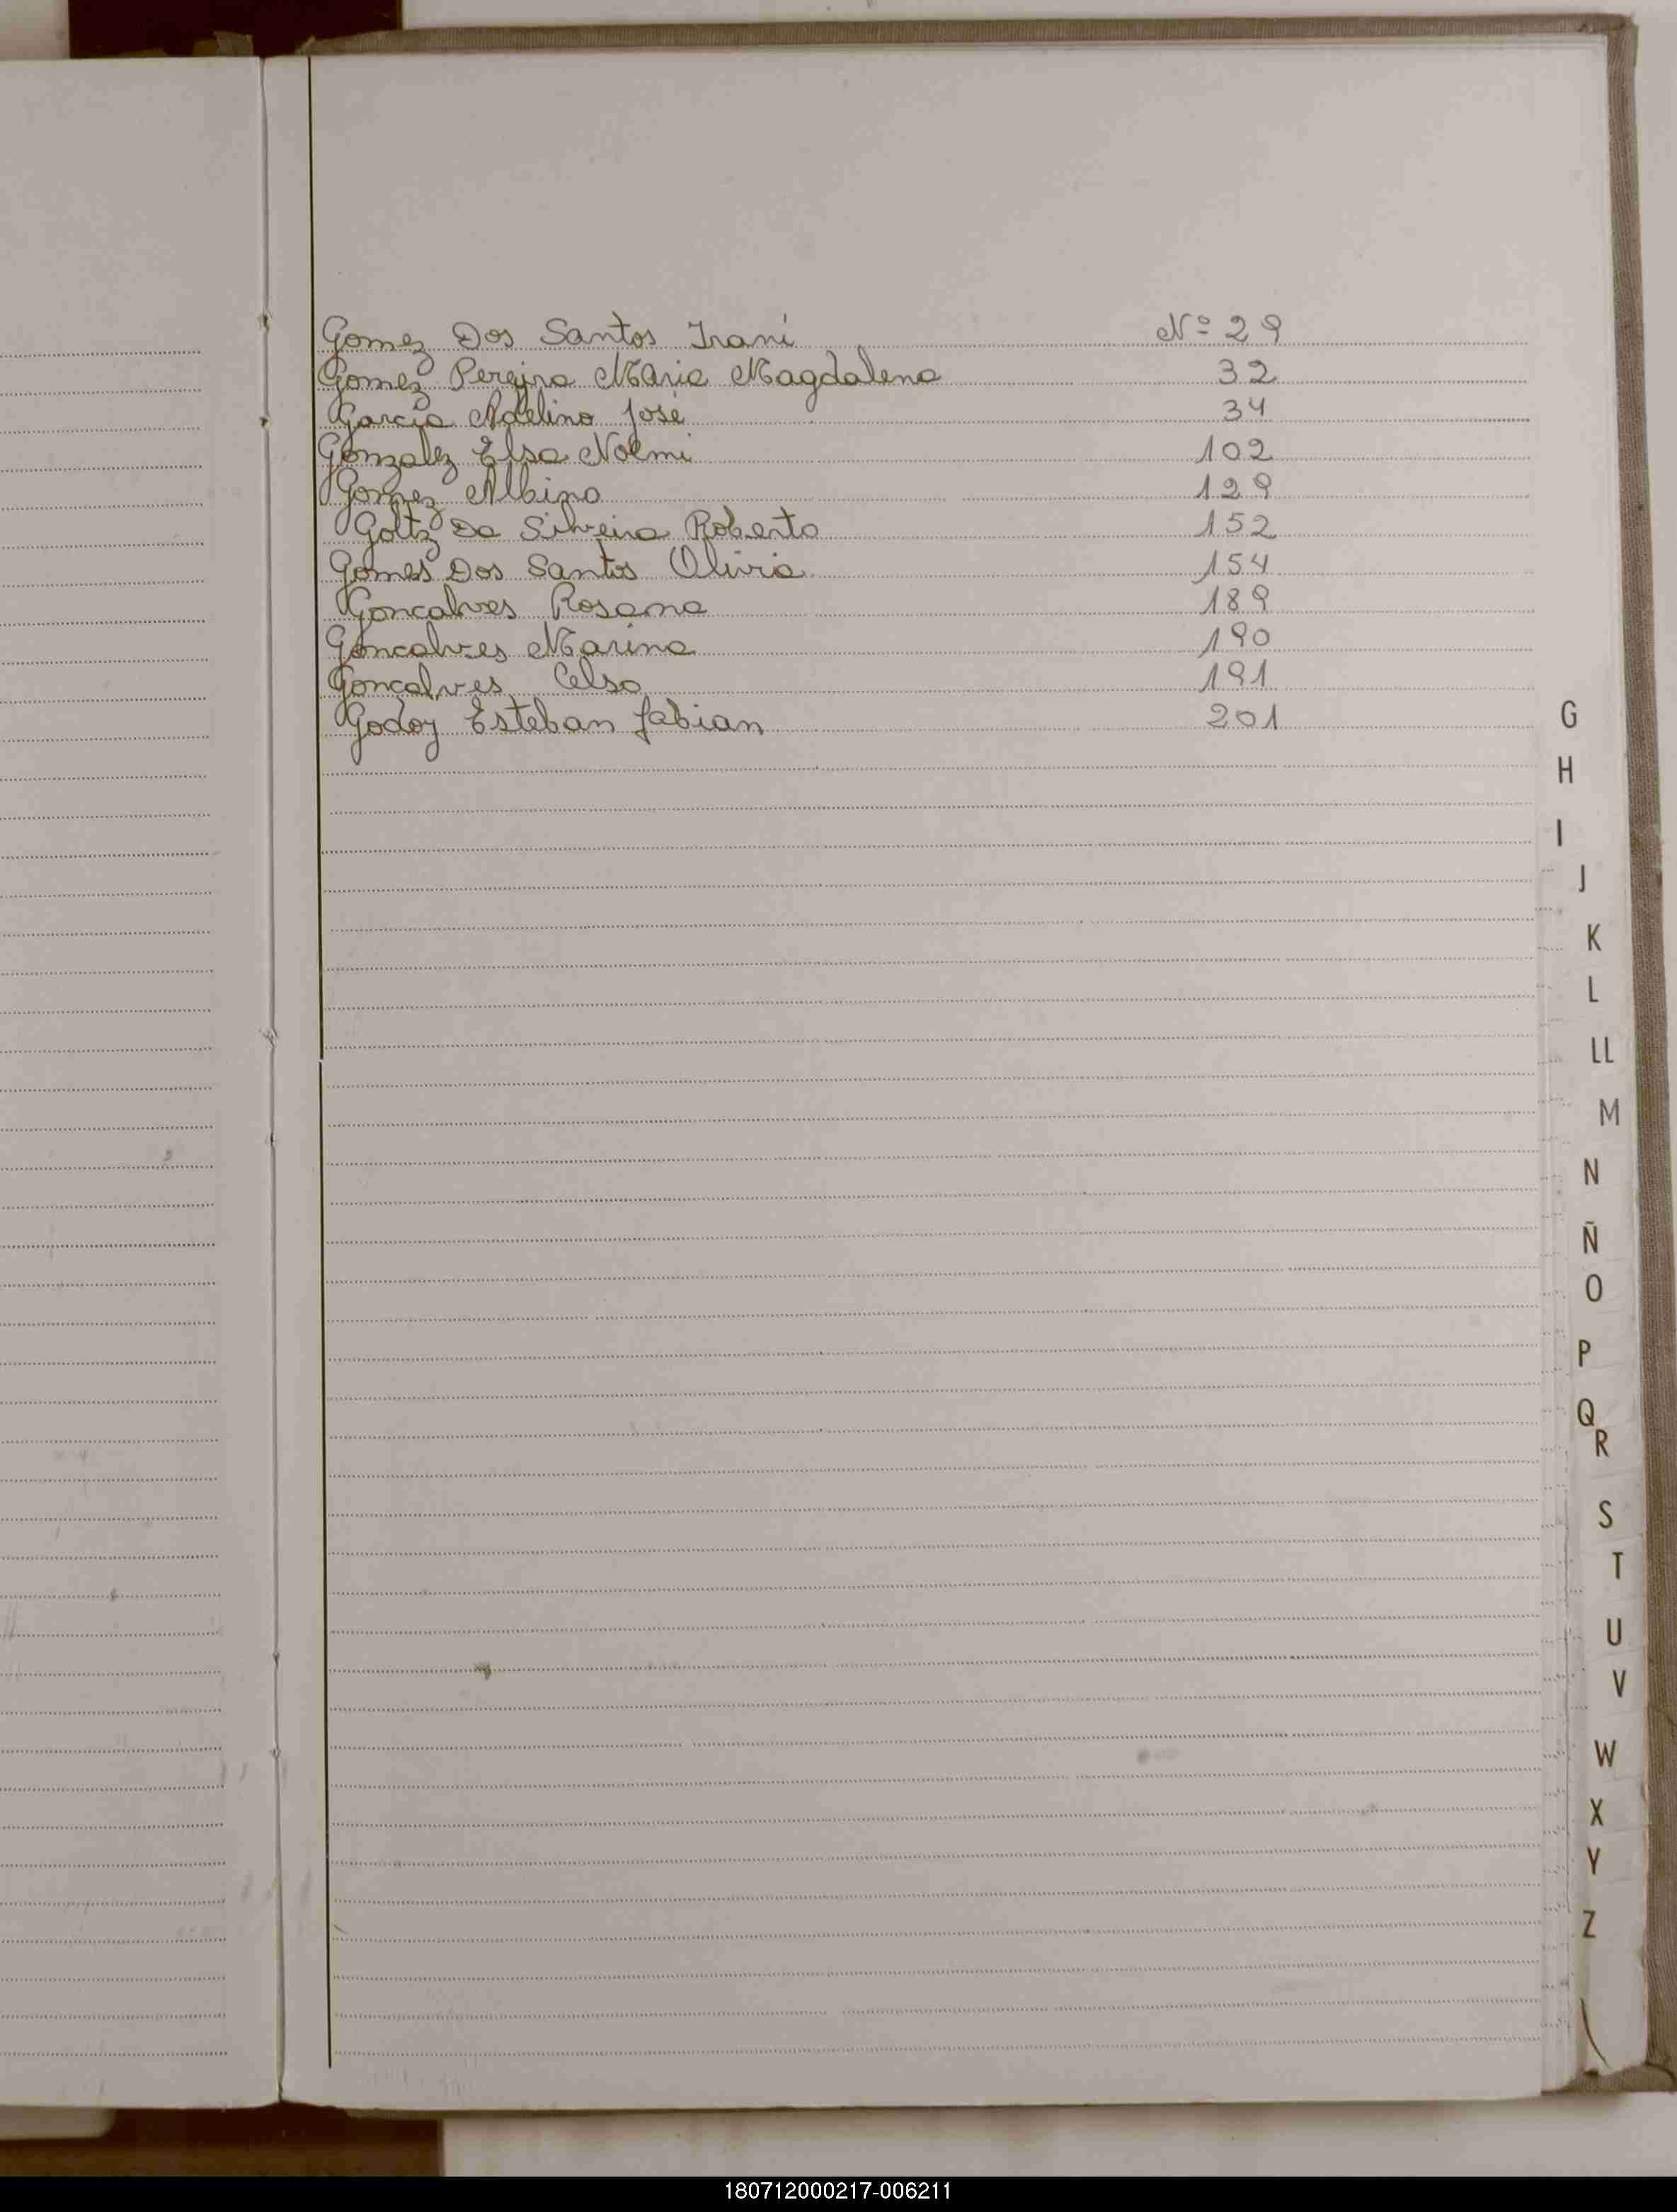 Gomez Dos Santos Irani Nº 29
Gomez Pereira Maria Magdalena 32
Garcia Adelino José 34
Gonzalez Elsa Noemi 102
Gomez Albino 129
Goltz Da Silveira Roberto 152
Gomes Dos Santos Olivia 154
Goncalves Rosana 189
Goncalves Marina 190
Goncalves Celso 191
Godoy Esteban fabian 201
G
H
I
J
K
L
LL
M
N
Ñ
O
P
Q
R
S
T
U
V
W
X
Y
Z
180712000217-006211